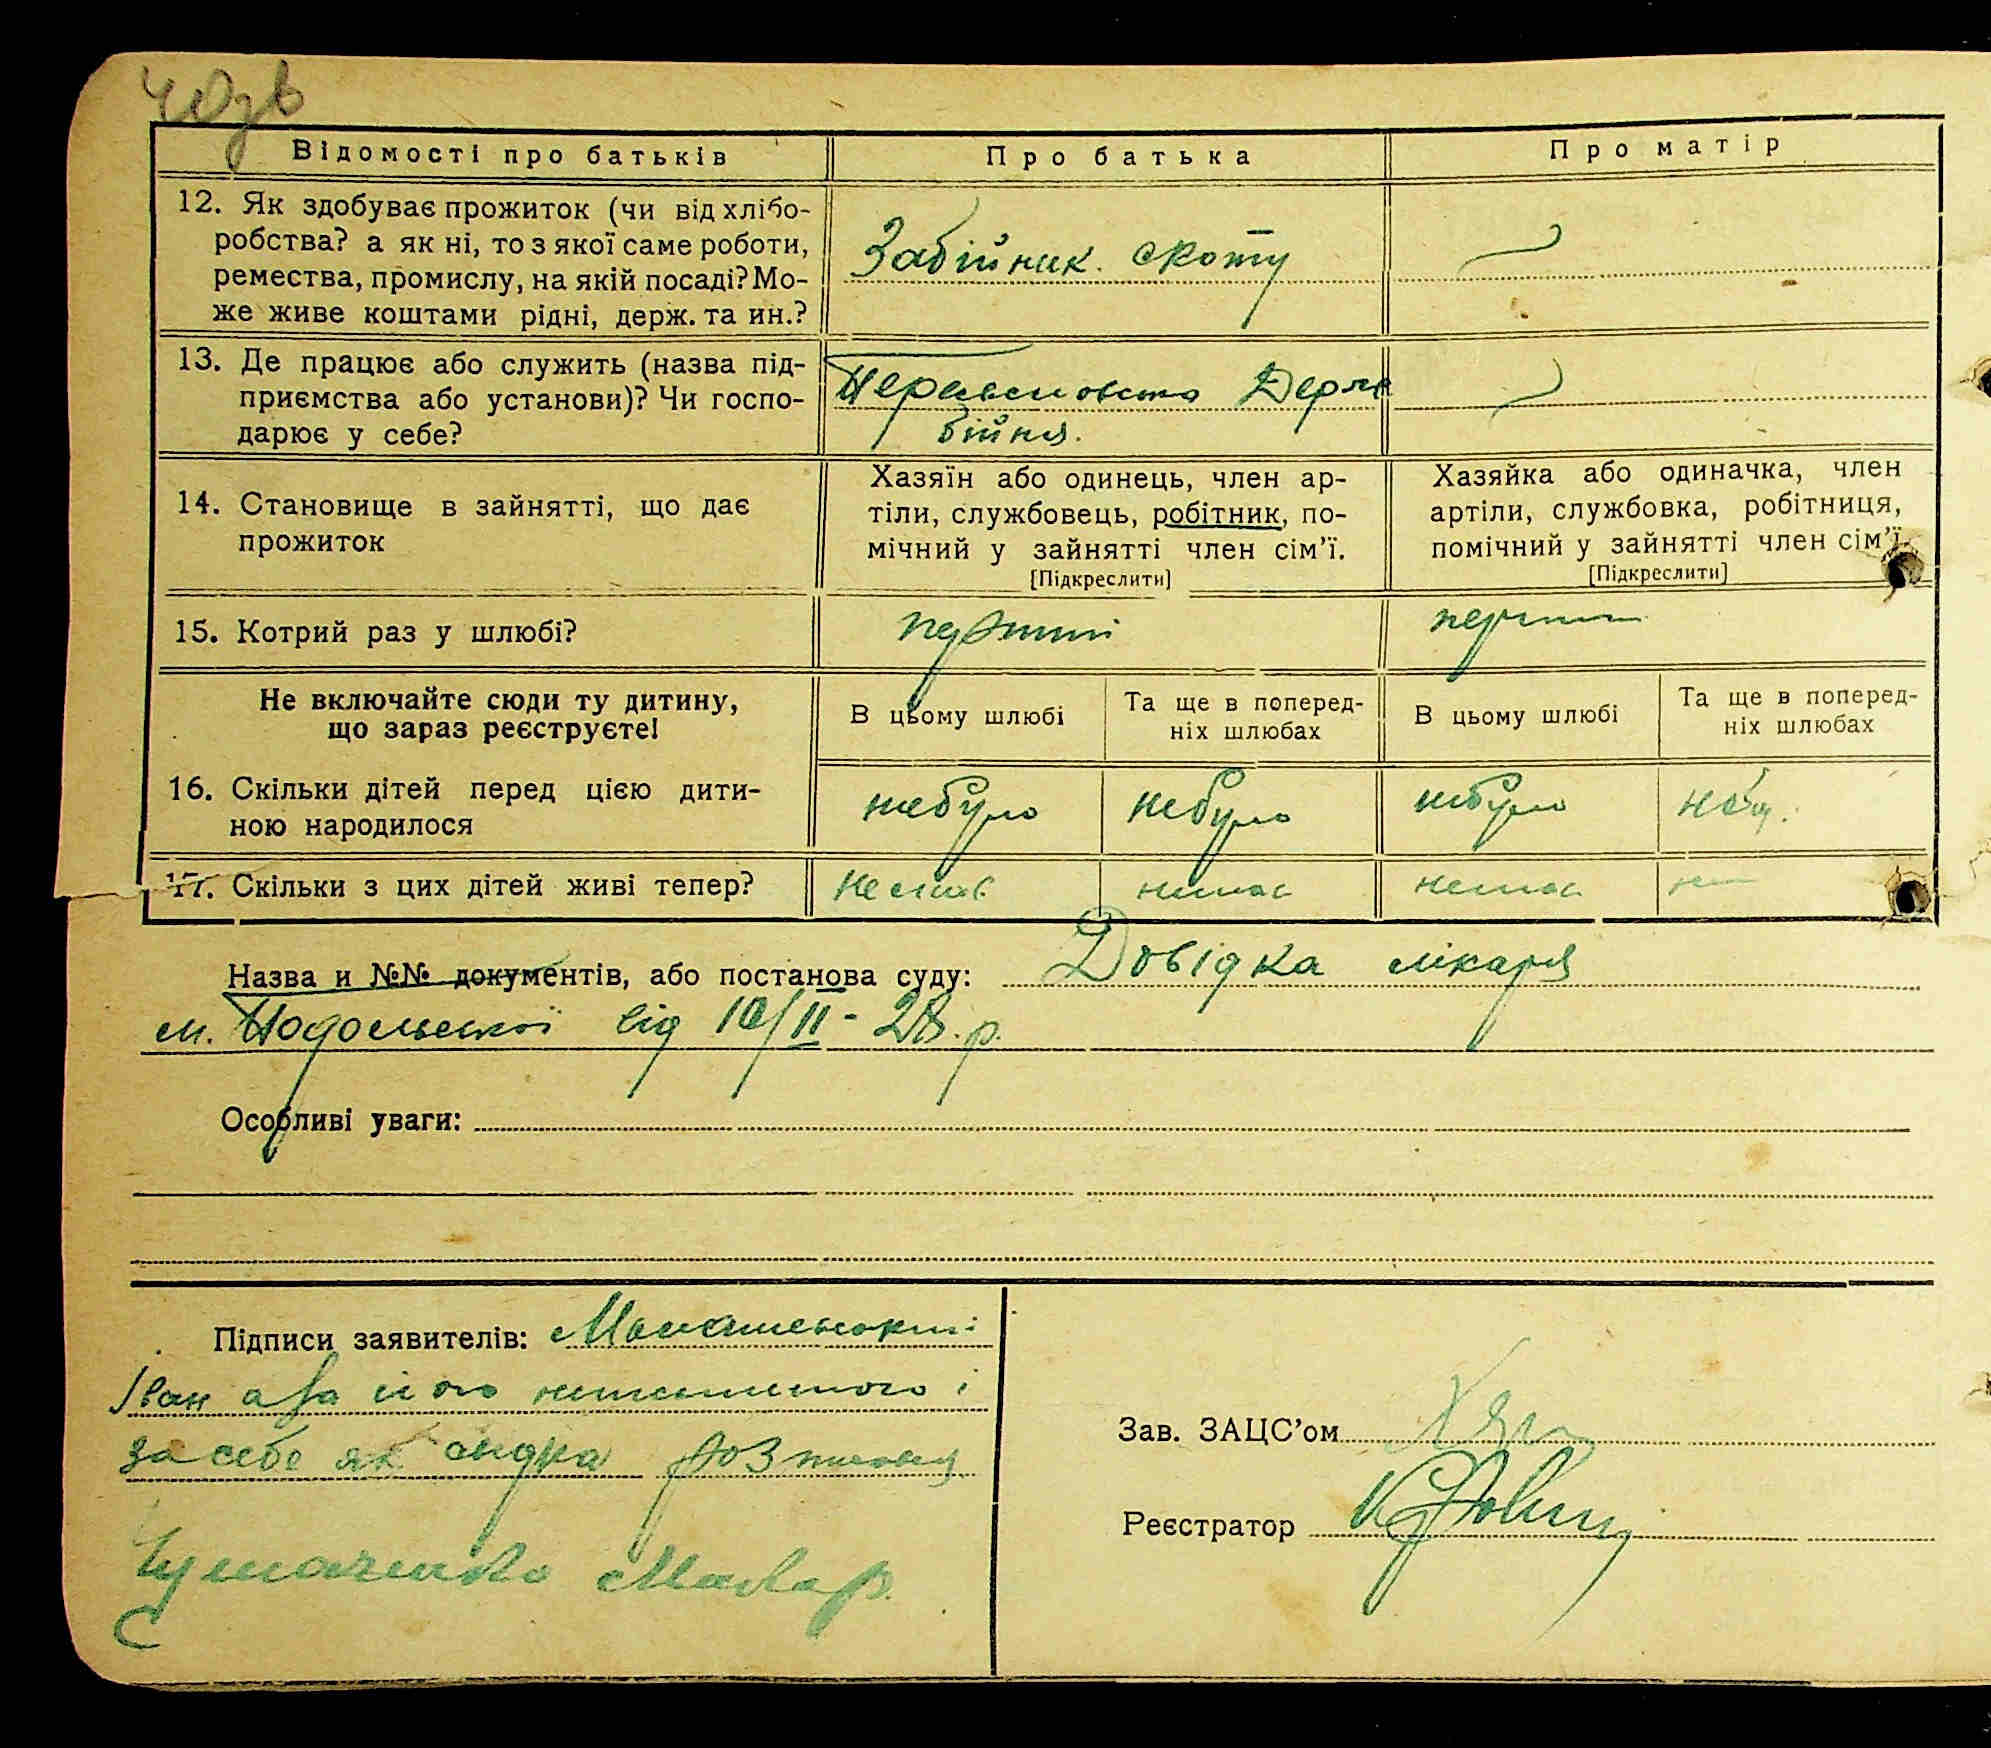 40зв
Відомості про батьків
Про батька
Про матір
12. Як здобуває прожиток (чи від хлібо-
робства? а як ні, то з якої саме роботи,
ремества, промислу, на якій посаді? Мо-
же живе коштами рідні, держ. та ин.?
Забійник скоту
13. Де працює або служить (назва під-
приємства або установи)? Чи госпо-
дарює у себе?
Держ
бійня.
14. Становище в зайнятті, що дає
прожиток
Хазяїн або одинець, член ар-
тіли, службовець, робітник, по-
мічний у зайнятті член сім'ї.
[Підкреслити]
Хазяйка або одиначка, член
артіли, службовка, робітниця,
помічний у зайнятті член сім'ї.
[Підкреслити]
15. Котрий раз у шлюбі?
перший
перший
Не включайте сюди ту дитину,
що зараз реєструєте!
В цьому шлюбі
Та ще в поперед-
ніх шлюбах
В цьому шлюбі
Та ще в поперед-
ніх шлюбах
16. Скільки дітей перед цією дити-
ною народилося
небуло
небуло
небуло
неб.
17. Скільки з цих дітей живі тепер?
немає
немає
немає
Назва и №№ документів, або постанова суду: Довідка лікаря
м. Подольської від 10/II - 28 р.
Особливі уваги:
Підписи заявителів:
Іван а за його неписьменого і
за себе як свідка розписався
Мака р.
Зав. ЗАЦС'ом
Реєстратор